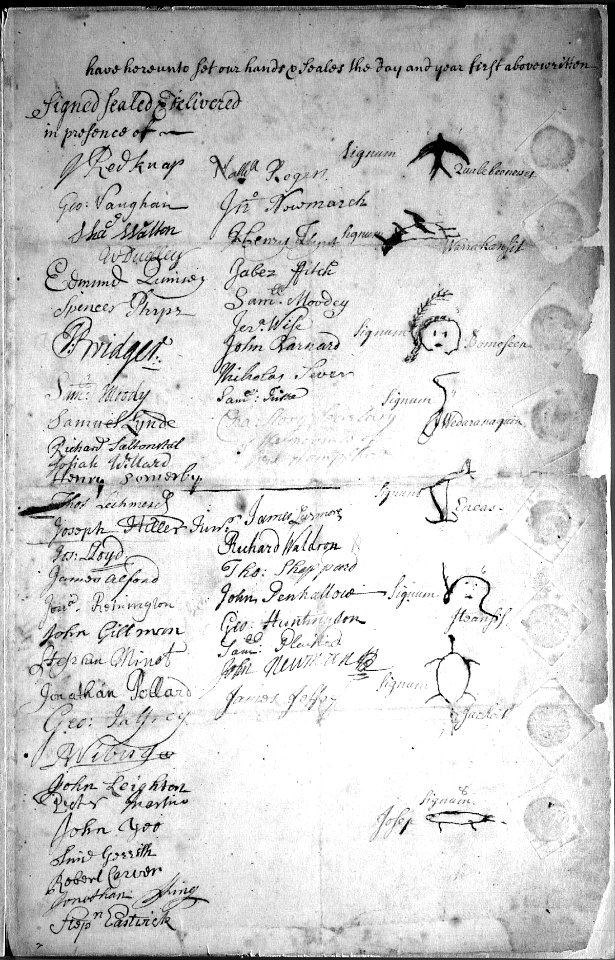 have hereunto set our hands & Seales the Day and year first abovewritten
Signed Sealed & Delivered
in presence of
J Redknap
Geo: Vaughan
Shad Walton
Edmund Quinsey
Spencer Phips
T Bridger
Sam:ll Moody
Samuel Lynde
Richard Saltonstal
Josiah Willard
Henry Somerby
Tho:s Lechmere
Joseph Hiller Junr
Jas: Lloyd
James Alford
Jon:a Remington
John Gillman
Stephan Minot
Jonathan Pollard
Geo: Jaffrey
J Wibird
John Leighton
Peter Martino
John Yoo
Robert Carver
Jonathan King
Step:n Eastwick
Nath:ll Rogers
Jn:o Newmarch
Henry Flynt
Jabez Fitch
Sam:ll Moodey
Jer:a Wise
John Barnard
Nicholas Sever
Sam:l Fiske
Cha: Story Secretary
James
Richard Waldron
Tho: Sheppard
John Penhallow
Geo: Huntingdon
Sam:ll
John Newman
James Jeffry
Signum
Signum Warrakansit
Signum Bomoseen
Signum Wedaranaquin
Signum Eneas
Signum Iteansis
Signum Jackoit
Signum
Josep